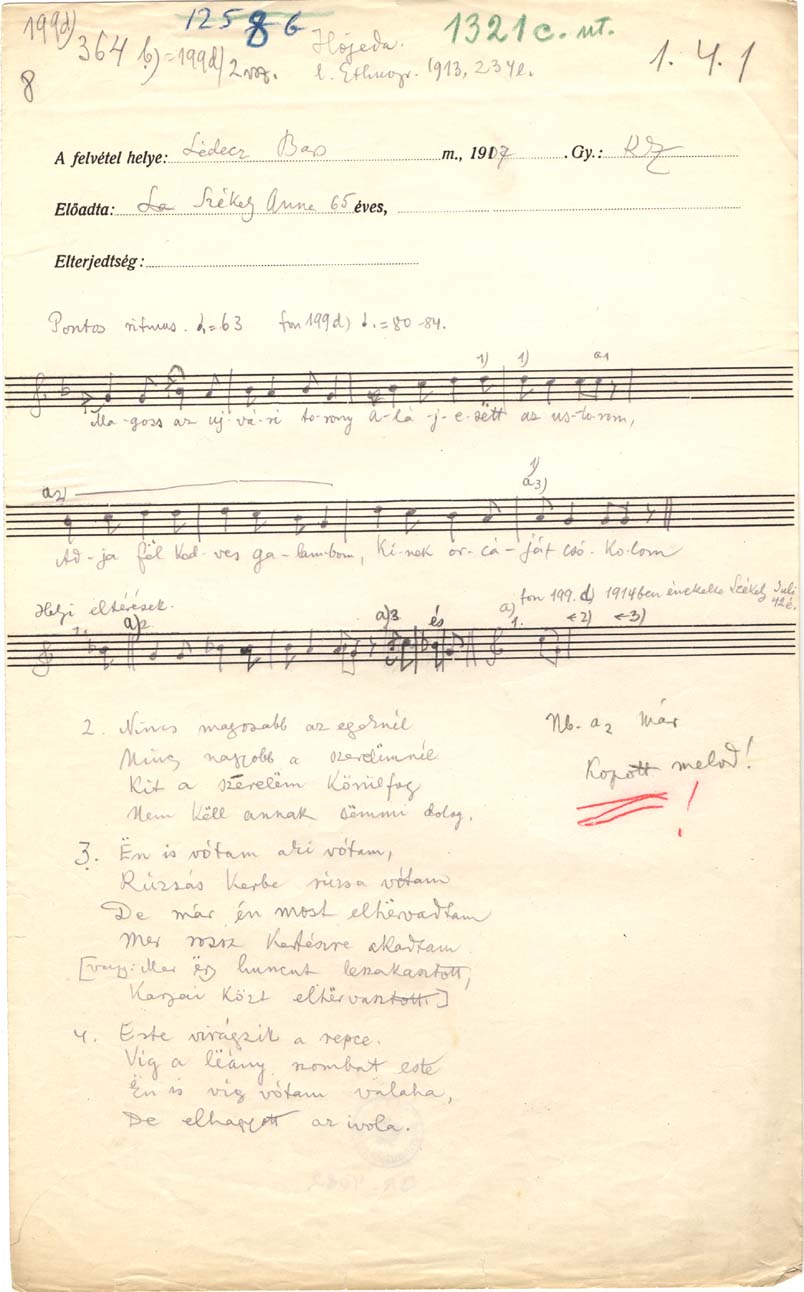 199d)
364 b) = 199d) 2 vsz.
8
12586
1321 c. ut.
1. 4. 1
l. Ethnogr. 1913, 234 l.
A felvétel helye: Lédecz Bars m., 1917 Gy.: KZ
Előadta: Székely Anna 65 éves,
Elterjedtség:
Pontos ritmus. = 63 fon 199d) = 80-84.
1) 1) a1
Ma-goss az uj-vá-ri to-rony Á-lá-j-e-sëtt az us-to-rom,
a2)
1)
a3)
Ad-ja fël ked-ves ga-lam-bom, Ki-nek or-cá-ját csó-ko-lom
Helyi eltérések.
1. a)2 a)3 és a) 1. 2) 3)
fon 199. d) 1914ben énekelte Székely Juli 42 é.
2. Nincs magosabb az egeknél
Nincs nagyobb a szerelëmnél
Kit a szerelëm körülfog
Nem këll annak sëmmi dolog.
Nb. a2 már
kopott melod!
!
3. Ën is vótam aki vótam,
Rúzsás kerbe rúzsa vótam
De már én most elhërvadtam
Mer rossz kertészre akadtam
[vagy: Mer ëgy huncut leszakasztott,
Karjai közt elhërvasztott.]
4. Este virágzik a repce.
Víg a lëány szombat este
Ën is víg vótam valaha,
De elhagyott az ivola.